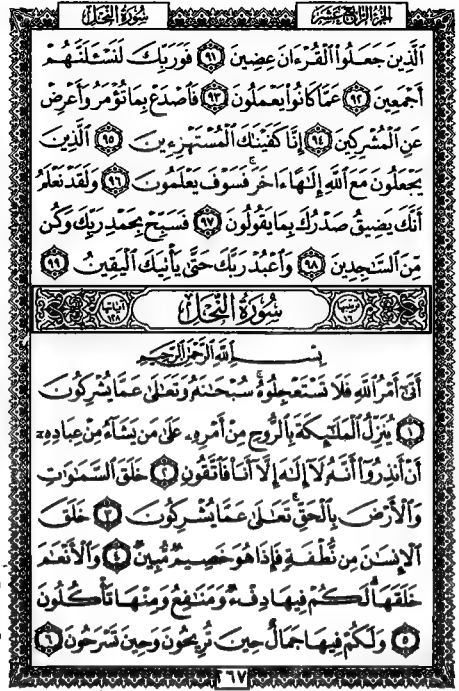 الجزء الرابع عشر
سورة النحل
ٱلَّذِينَ جَعَلُوا۟ ٱلْقُرْءَانَ عِضِينَ ٩١ فَوَرَبِّكَ لَنَسْـَٔلَنَّهُمْ
أَجْمَعِينَ ٩٢ عَمَّا كَانُوا۟ يَعْمَلُونَ ٩٣ فَٱصْدَعْ بِمَا تُؤْمَرُ وَأَعْرِضْ
عَنِ ٱلْمُشْرِكِينَ ٩٤ إِنَّا كَفَيْنَٰكَ ٱلْمُسْتَهْزِءِينَ ٩٥ ٱلَّذِينَ
يَجْعَلُونَ مَعَ ٱللَّهِ إِلَٰهًا ءَاخَرَ ۚ فَسَوْفَ يَعْلَمُونَ ٩٦ وَلَقَدْ نَعْلَمُ
أَنَّكَ يَضِيقُ صَدْرُكَ بِمَا يَقُولُونَ ٩٧ فَسَبِّحْ بِحَمْدِ رَبِّكَ وَكُن
مِّنَ ٱلسَّٰجِدِينَ ٩٨ وَٱعْبُدْ رَبَّكَ حَتَّىٰ يَأْتِيَكَ ٱلْيَقِينُ ٩٩
ترتيبها ١٦ سُورَةُ النَّحْلِ آياتها ١٢٨
بِسْمِ ٱللَّهِ ٱلرَّحْمَٰنِ ٱلرَّحِيمِ
أَتَىٰٓ أَمْرُ ٱللَّهِ فَلَا تَسْتَعْجِلُوهُ ۚ سُبْحَٰنَهُۥ وَتَعَٰلَىٰ عَمَّا يُشْرِكُونَ
١ يُنَزِّلُ ٱلْمَلَٰٓئِكَةَ بِٱلرُّوحِ مِنْ أَمْرِهِۦ عَلَىٰ مَن يَشَآءُ مِنْ عِبَادِهِۦٓ
أَنْ أَنذِرُوٓا۟ أَنَّهُۥ لَآ إِلَٰهَ إِلَّآ أَنَا۠ فَٱتَّقُونِ ٢ خَلَقَ ٱلسَّمَٰوَٰتِ
وَٱلْأَرْضَ بِٱلْحَقِّ ۚ تَعَٰلَىٰ عَمَّا يُشْرِكُونَ ٣ خَلَقَ
ٱلْإِنسَٰنَ مِن نُّطْفَةٍ فَإِذَا هُوَ خَصِيمٌ مُّبِينٌ ٤ وَٱلْأَنْعَٰمَ
خَلَقَهَا ۗ لَكُمْ فِيهَا دِفْءٌ وَمَنَٰفِعُ وَمِنْهَا تَأْكُلُونَ
٥ وَلَكُمْ فِيهَا جَمَالٌ حِينَ تُرِيحُونَ وَحِينَ تَسْرَحُونَ ٦
٢٦٧